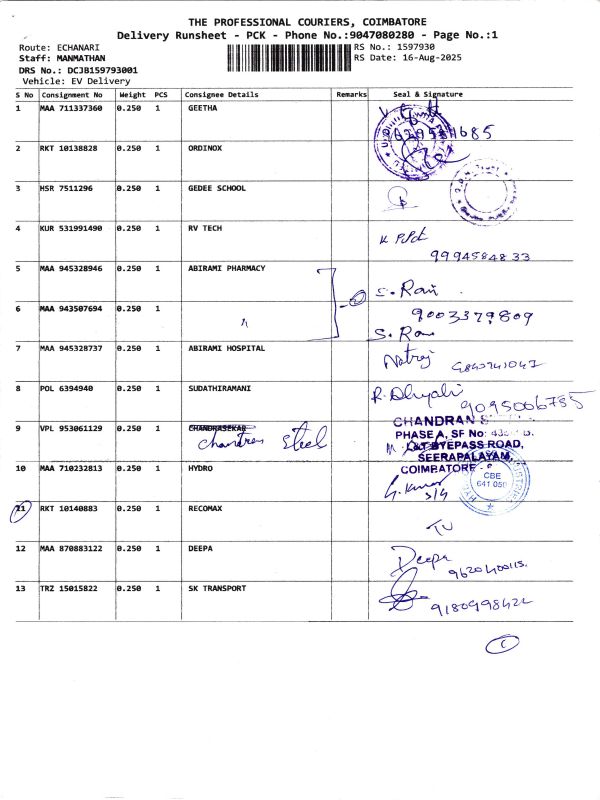 THE PROFESSIONAL COURIERS, COIMBATORE
Delivery Runsheet - PCK - Phone No.:9047080280 - Page No.:1
Route: ECHANARI RS No.: 1597930
Staff: MANMATHAN RS Date: 16-Aug-2025
DRS No.: DCJB159793001
Vehicle: EV Delivery
S No Consignment No Weight PCS Consignee Details Remarks Seal & Signature
1 MAA 711337360 0.250 1 GEETHA
2 RKT 10138828 0.250 1 ORDINOX
3 HSR 7511296 0.250 1 GEDEE SCHOOL
4 KUR 531991490 0.250 1 RV TECH
9994584833
5 MAA 945328946 0.250 1 ABIRAMI PHARMACY
6 MAA 943507694 0.250 1 9003379809
7 MAA 945328737 0.250 1 ABIRAMI HOSPITAL
8 POL 6394940 0.250 1 SUDATHIRAMANI
9095006785
9 VPL 953061129 0.250 1 CHANDRASEKAR CHANDRAN
Steel PHASE A, SF No:
L&T BYEPASS ROAD,
SEERAPALAYAM,
10 MAA 710232813 0.250 1 HYDRO COIMBATORE -
CBE
11 RKT 10140883 0.250 1 RECOMAX
12 MAA 870883122 0.250 1 DEEPA Deepa
9620400115.
13 TRZ 15015822 0.250 1 SK TRANSPORT